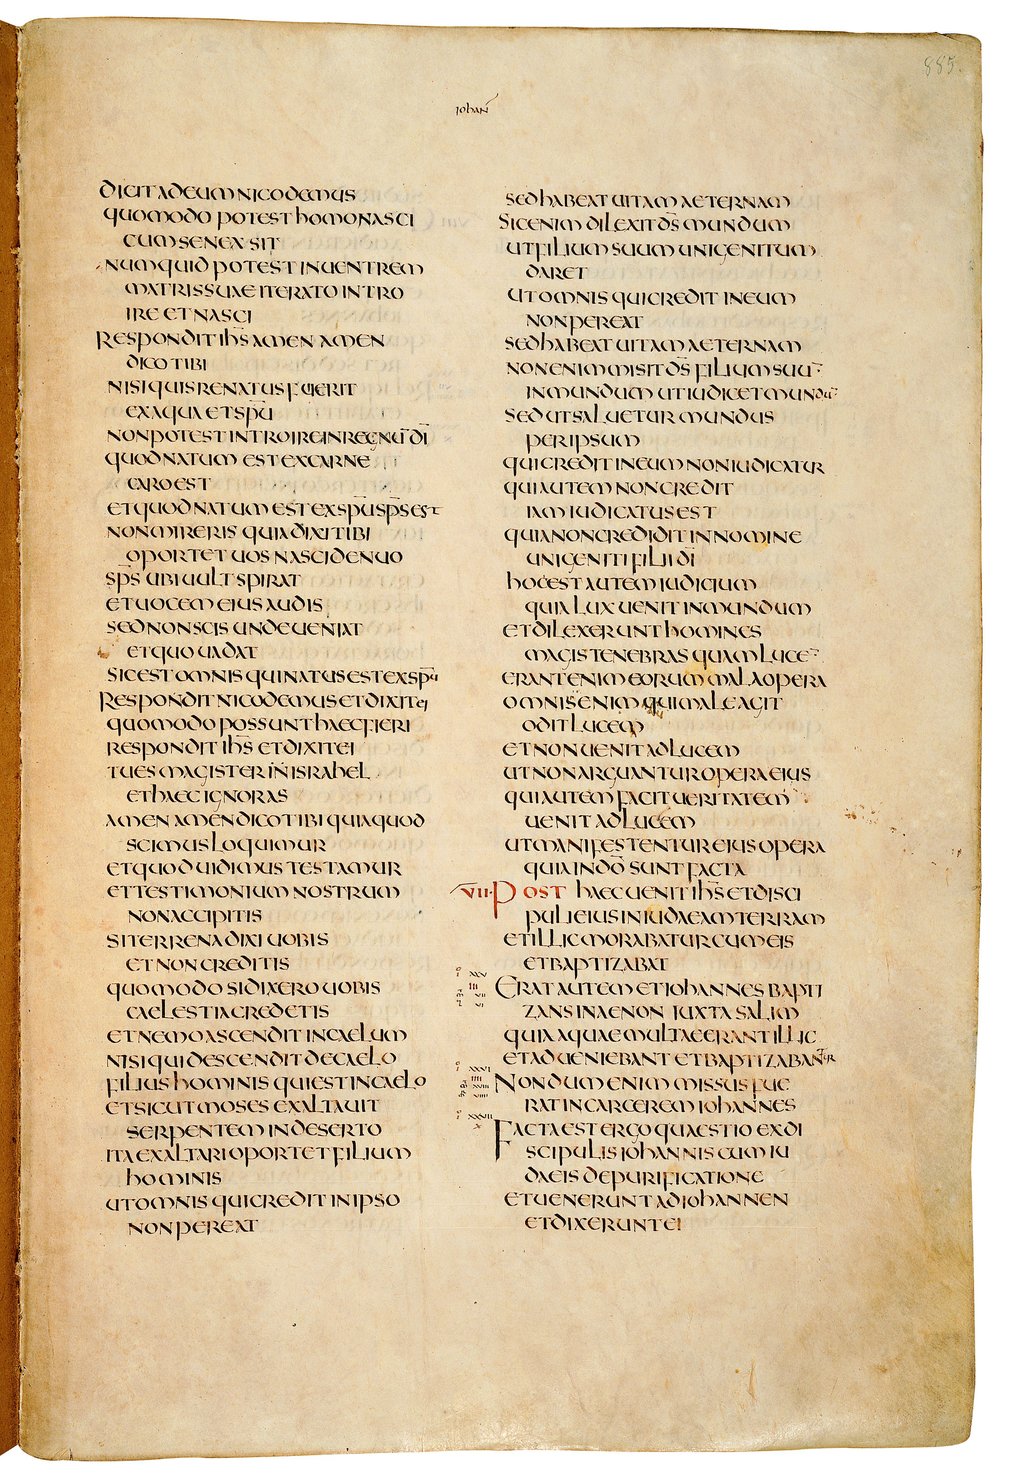 885.
iohan̄
DICIT AD EUM NICODEMUS
QUOMODO POTEST HOMO NASCI
CUM SENEX SIT
NUMQUID POTEST IN UENTREM
MATRIS SUAE ITERATO INTRO
IRE ET NASCI
RESPONDIT IHS̄ AMEN AMEN
DICO TIBI
NISI QUIS RENATUS FUERIT
EX AQUA ET SPŪ
NON POTEST INTROIRE IN REGNŪ DĪ
QUOD NATUM EST EX CARNE
CARO EST
ET QUOD NATUM EST EX SPŪ SPS̄ EST
NON MIRERIS QUIA DIXI TIBI
OPORTET UOS NASCI DENUO
SPS̄ UBI UULT SPIRAT
ET UOCEM EIUS AUDIS
SED NON SCIS UNDE UENIAT
ET QUO UADAT
SIC EST OMNIS QUI NATUS EST EX SPŪ
RESPONDIT NICODEMUS ET DIXIT EI
QUOMODO POSSUNT HAEC FIERI
RESPONDIT IHS̄ ET DIXIT EI
TU ES MAGISTER IN ISRAHEL
ET HAEC IGNORAS
AMEN AMEN DICO TIBI QUIA QUOD
SCIMUS LOQUIMUR
ET QUOD UIDIMUS TESTAMUR
ET TESTIMONIUM NOSTRUM
NON ACCIPITIS
SI TERRENA DIXI UOBIS
ET NON CREDITIS
QUOMODO SI DIXERO UOBIS
CAELESTIA CREDETIS
ET NEMO ASCENDIT IN CAELUM
NISI QUI DESCENDIT DE CAELO
FILIUS HOMINIS QUI EST IN CAELO
ET SICUT MOSES EXALTAUIT
SERPENTEM IN DESERTO
ITA EXALTARI OPORTET FILIUM
HOMINIS
UT OMNIS QUI CREDIT IN IPSO
NON PEREAT
SED HABEAT UITAM AETERNAM
SIC ENIM DILEXIT DS̄ MUNDUM
UT FILIUM SUUM UNIGENITUM
DARET
UT OMNIS QUI CREDIT IN EUM
NON PEREAT
SED HABEAT UITAM AETERNAM
NON ENIM MISIT DS̄ FILIUM SUU̅
IN MUNDUM UT IUDICET MUNDU̅
SED UT SALUETUR MUNDUS
PER IPSUM
QUI CREDIT IN EUM NON IUDICATUR
QUI AUTEM NON CREDIT
IAM IUDICATUS EST
QUIA NON CREDIDIT IN NOMINE
UNIGENITI FILII DĪ
HOC EST AUTEM IUDICIUM
QUIA LUX UENIT IN MUNDUM
ET DILEXERUNT HOMINES
MAGIS TENEBRAS QUAM LUCE̅
ERANT ENIM EORUM MALA OPERA
OMNIS ENIM QUI MALE AGIT
ODIT LUCEM
ET NON UENIT AD LUCEM
UT NON ARGUANTUR OPERA EIUS
QUI AUTEM FACIT UERITATEM
UENIT AD LUCEM
UT MANIFESTENTUR EIUS OPERA
QUIA IN DŌ SUNT FACTA
VII POST HAEC UENIT IHS̄ ET DISCI
PULI EIUS IN IUDAEAM TERRAM
ET ILLIC MORABATUR CUM EIS
ET BAPTIZABAT
XXV
ERAT AUTEM ET IOHANNES BAPTI
ZANS IN AENON IUXTA SALIM
QUIA AQUAE MULTAE ERANT ILLIC
ET ADUENIEBANT ET BAPTIZABANTUR
XXVI
NONDUM ENIM MISSUS FUE
RAT IN CARCEREM IOHANNES
XXVII
FACTA EST ERGO QUAESTIO EX DI
SCIPULIS IOHANNIS CUM IU
DAEIS DE PURIFICATIONE
ET UENERUNT AD IOHANNEN
ET DIXERUNT EI